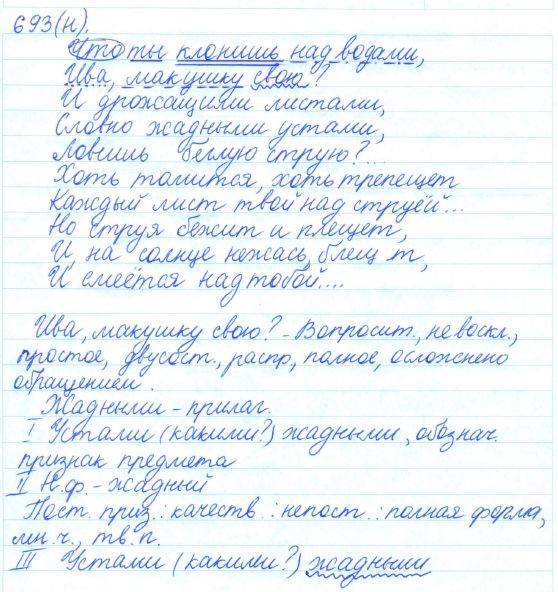 693(н).
Что ты клонишь над водами,
Ива, макушку свою?
И дрожащими листами,
Словно жадными устами,
Ловишь беглую струю?...
Хоть томится, хоть трепещет
Каждый лист твой над струёй...
Но струя бежит и плещет,
И на солнце нежась, блещ т,
И смеётся над тобой...
Ива, макушку свою? - Вопросит., невоскл.,
простое, двусост., распр, полное, осложнено
обращением.
Жадными - прилаг.
I Устами (какими?) жадными, обознач.
признак предмета
II Н.ф. - жадный
Пост. приз.: качеств.: непост.: полная форма,
мн.ч., тв.п.
III Устами (какими?) жадными